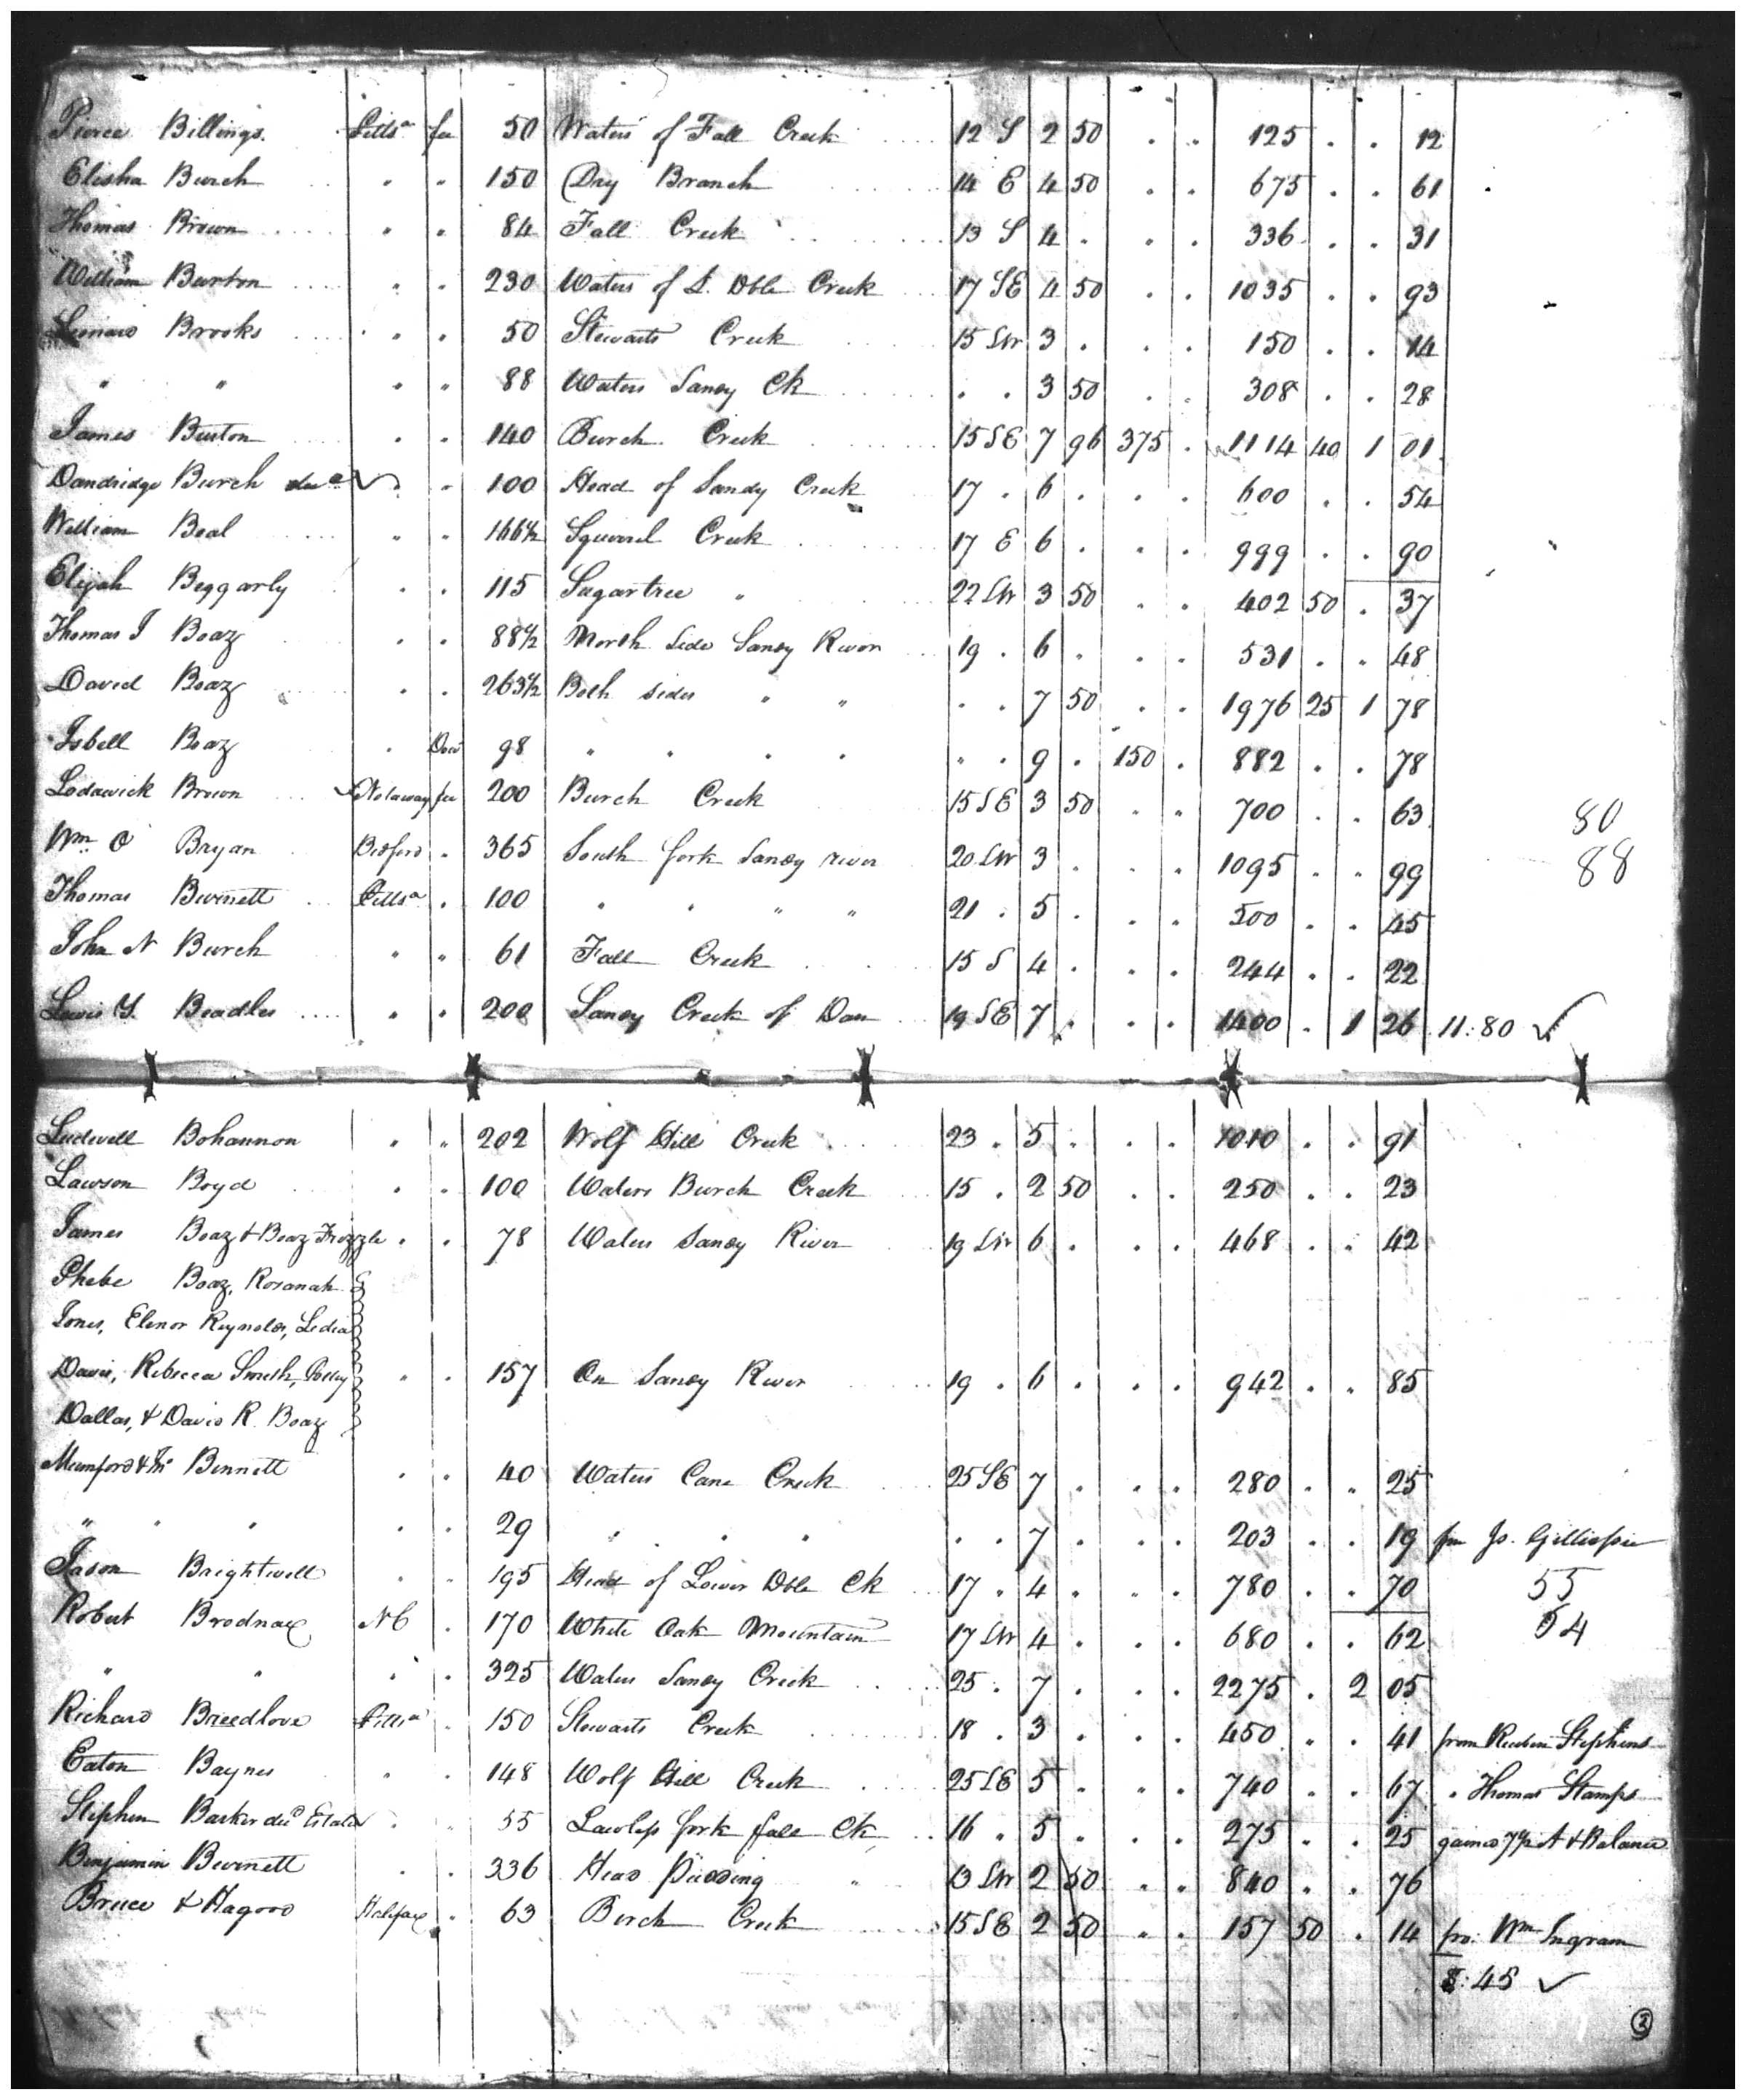 Pierce Billings. Pittsa fee 50 Waters of Fall Creek 12 S 2 50 125 12
Elisha Burch " " 150 Dry Branch 14 E 4 50 675 61
Thomas Brown " " 84 Fall Creek 13 S 4 336 31
William Burton " " 230 Waters of S. Dble Creek 17 SE 4 50 1035 93
Brooks " " 50 Stewarts Creek 15 SW 3 150 14
" " " " 88 Waters Sandy Ck 3 50 308 28
James Burton 140 Burch Creek 15 SE 7 96 375 1114 40 1 01
Dandridge Burch 100 Head of Sandy Creek 17 6 600 54
William Beal " " 166½ Squirrel Creek 17 E 6 999 90
Elijah Beggarly 115 Sugartree " 22 SW 3 50 402 50 37
Thomas J Boaz 88½ North Side Sandy River 19 6 531 48
David Boaz 263½ Both sides " " 7 50 1976 25 1 78
Isbell Boaz Dow 98 " " " " 9 150 882 78
Lodawick Brown Notaway fee 200 Burch Creek 15 SE 3 50 700 63 80
Wm. O Bryan Bedford 365 South fork Sandy river 20 SW 3 1095 99 88
Thomas Burnett Pittsa 100 " " " " 21 5 500 45
John N Burch " " 61 Fall Creek 15 S 4 244 22
Lewis Y. Beadles " " 200 Sandy Creek of Dan 19 SE 7 1400 1 26 11:80 ✓
Ludwell Bohannon " " 202 Wolf Hill Creek 23 5 1010 91
Lawson Boyd 100 Waters Burch Creek 15 2 50 250 23
James Boaz & Boaz Frizzle 78 Waters Sandy River 19 SW 6 468 42
Phebe Boaz, Rosanah
Jones, Elenor Reynolds, Ledia
Davis, Rebecca Smith, Polley 157 On Sandy River 19 6 942 85
Dallas, & David R. Boaz
Mumford & Bennett 40 Waters Cane Creek 25 SE 7 280 25
" " " 29 " " " 7 203 19 fm Jo. Gillispie
Jason Brightwell 195 Head of Lower Dble Ck 17 4 780 70 55
Robert Brodnax NC 170 White Oak Mountain 17 SW 4 680 62 54
" " 325 Waters Sandy Creek 25 7 2275 2 05
Richard Breedlove Pittsa 150 Stewarts Creek 18 3 450 41 from Reuben Stephens
Eaton Baynes 148 Wolf Hill Creek 25 SE 5 740 67 " Thomas Stamps
Stephen Barker decd Estate 55 Lawless fork fall Ck 16 5 275 25 gained 7½ A & Balance
Benjamin Burnett 336 Head Pudding " 13 SW 2 50 840 76
Bruce & Hagood Halifax 63 Burch Creek 15 SE 2 50 157 50 14 pr. Wm Ingram
8:45 ✓
2